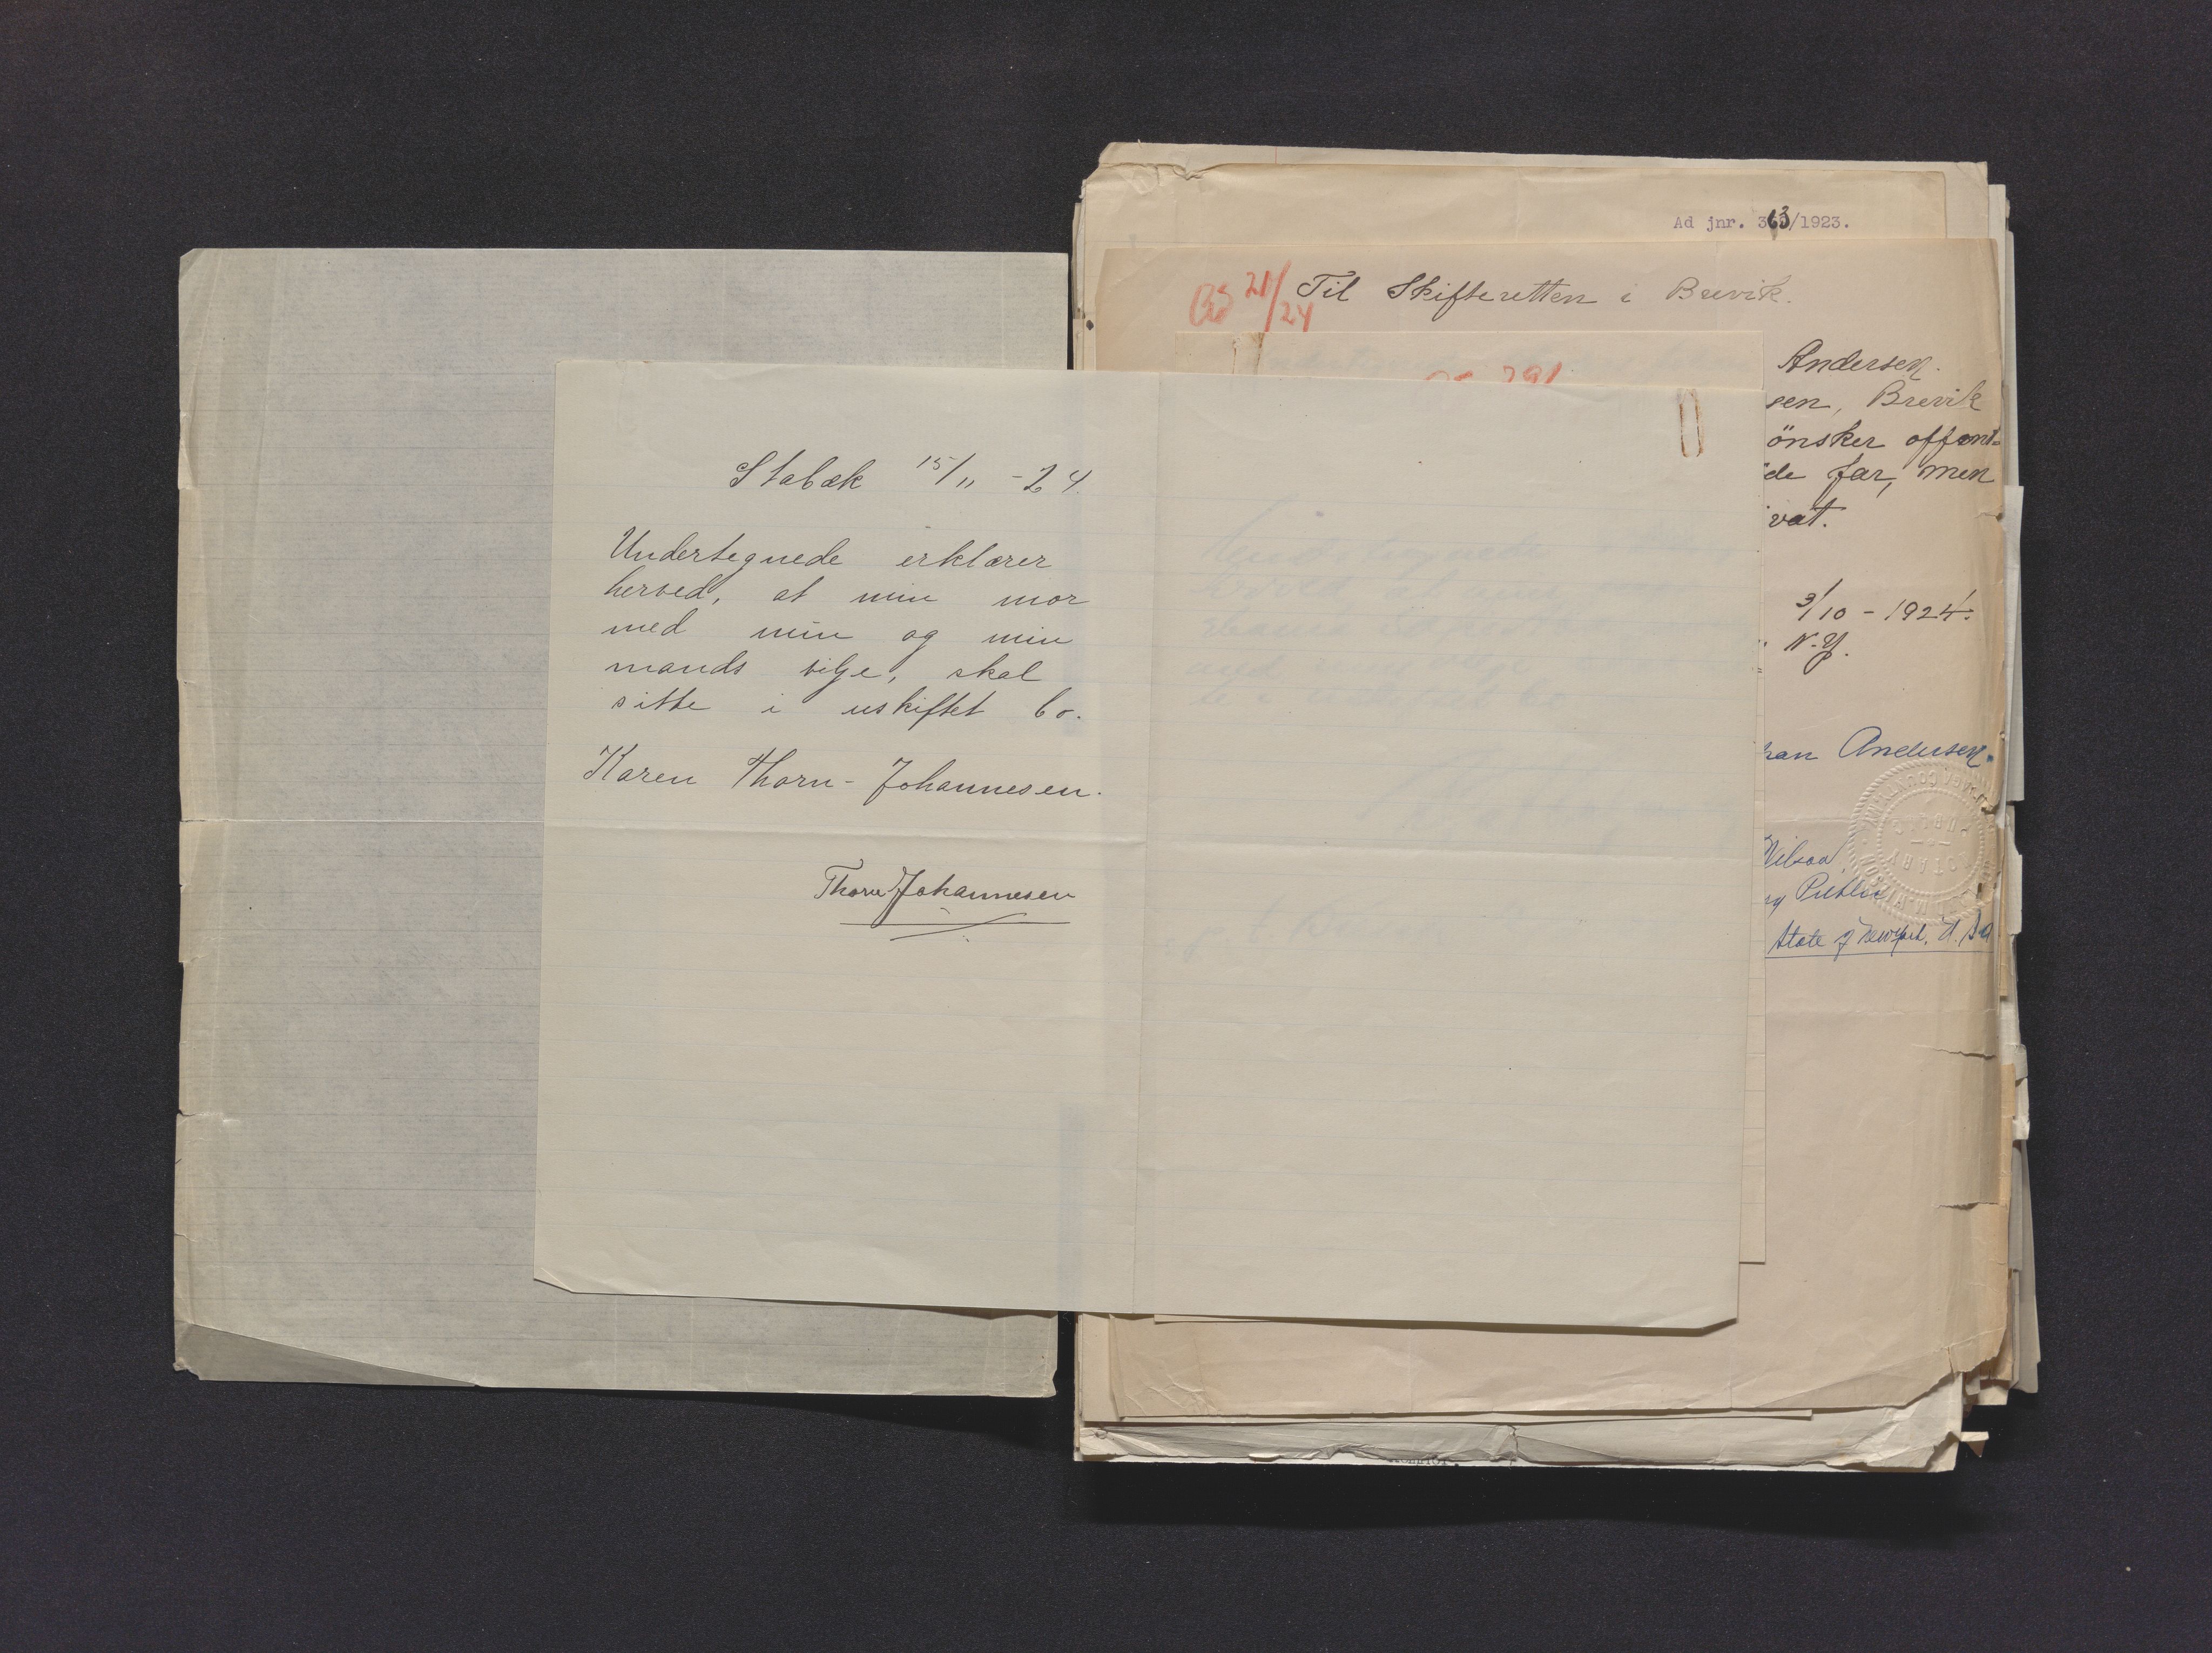 Stabæk 15/11 - 24.
Undertegnede erklærer
herved, at min mor
med min og min
mands vilje, skal
sitte i uskiftet bo.
Karen Thorn-Johannesen.
Thorn Johannesen
Ad jnr. 363/1923.
21/24
Til Skifteretten i Brevik.
Andersen.
sen, Brevik
önsker offent=
de far, men
vat.
3/10 - 1924.
N.Y.
han Andersen.
Public
State of New York, U.S.A